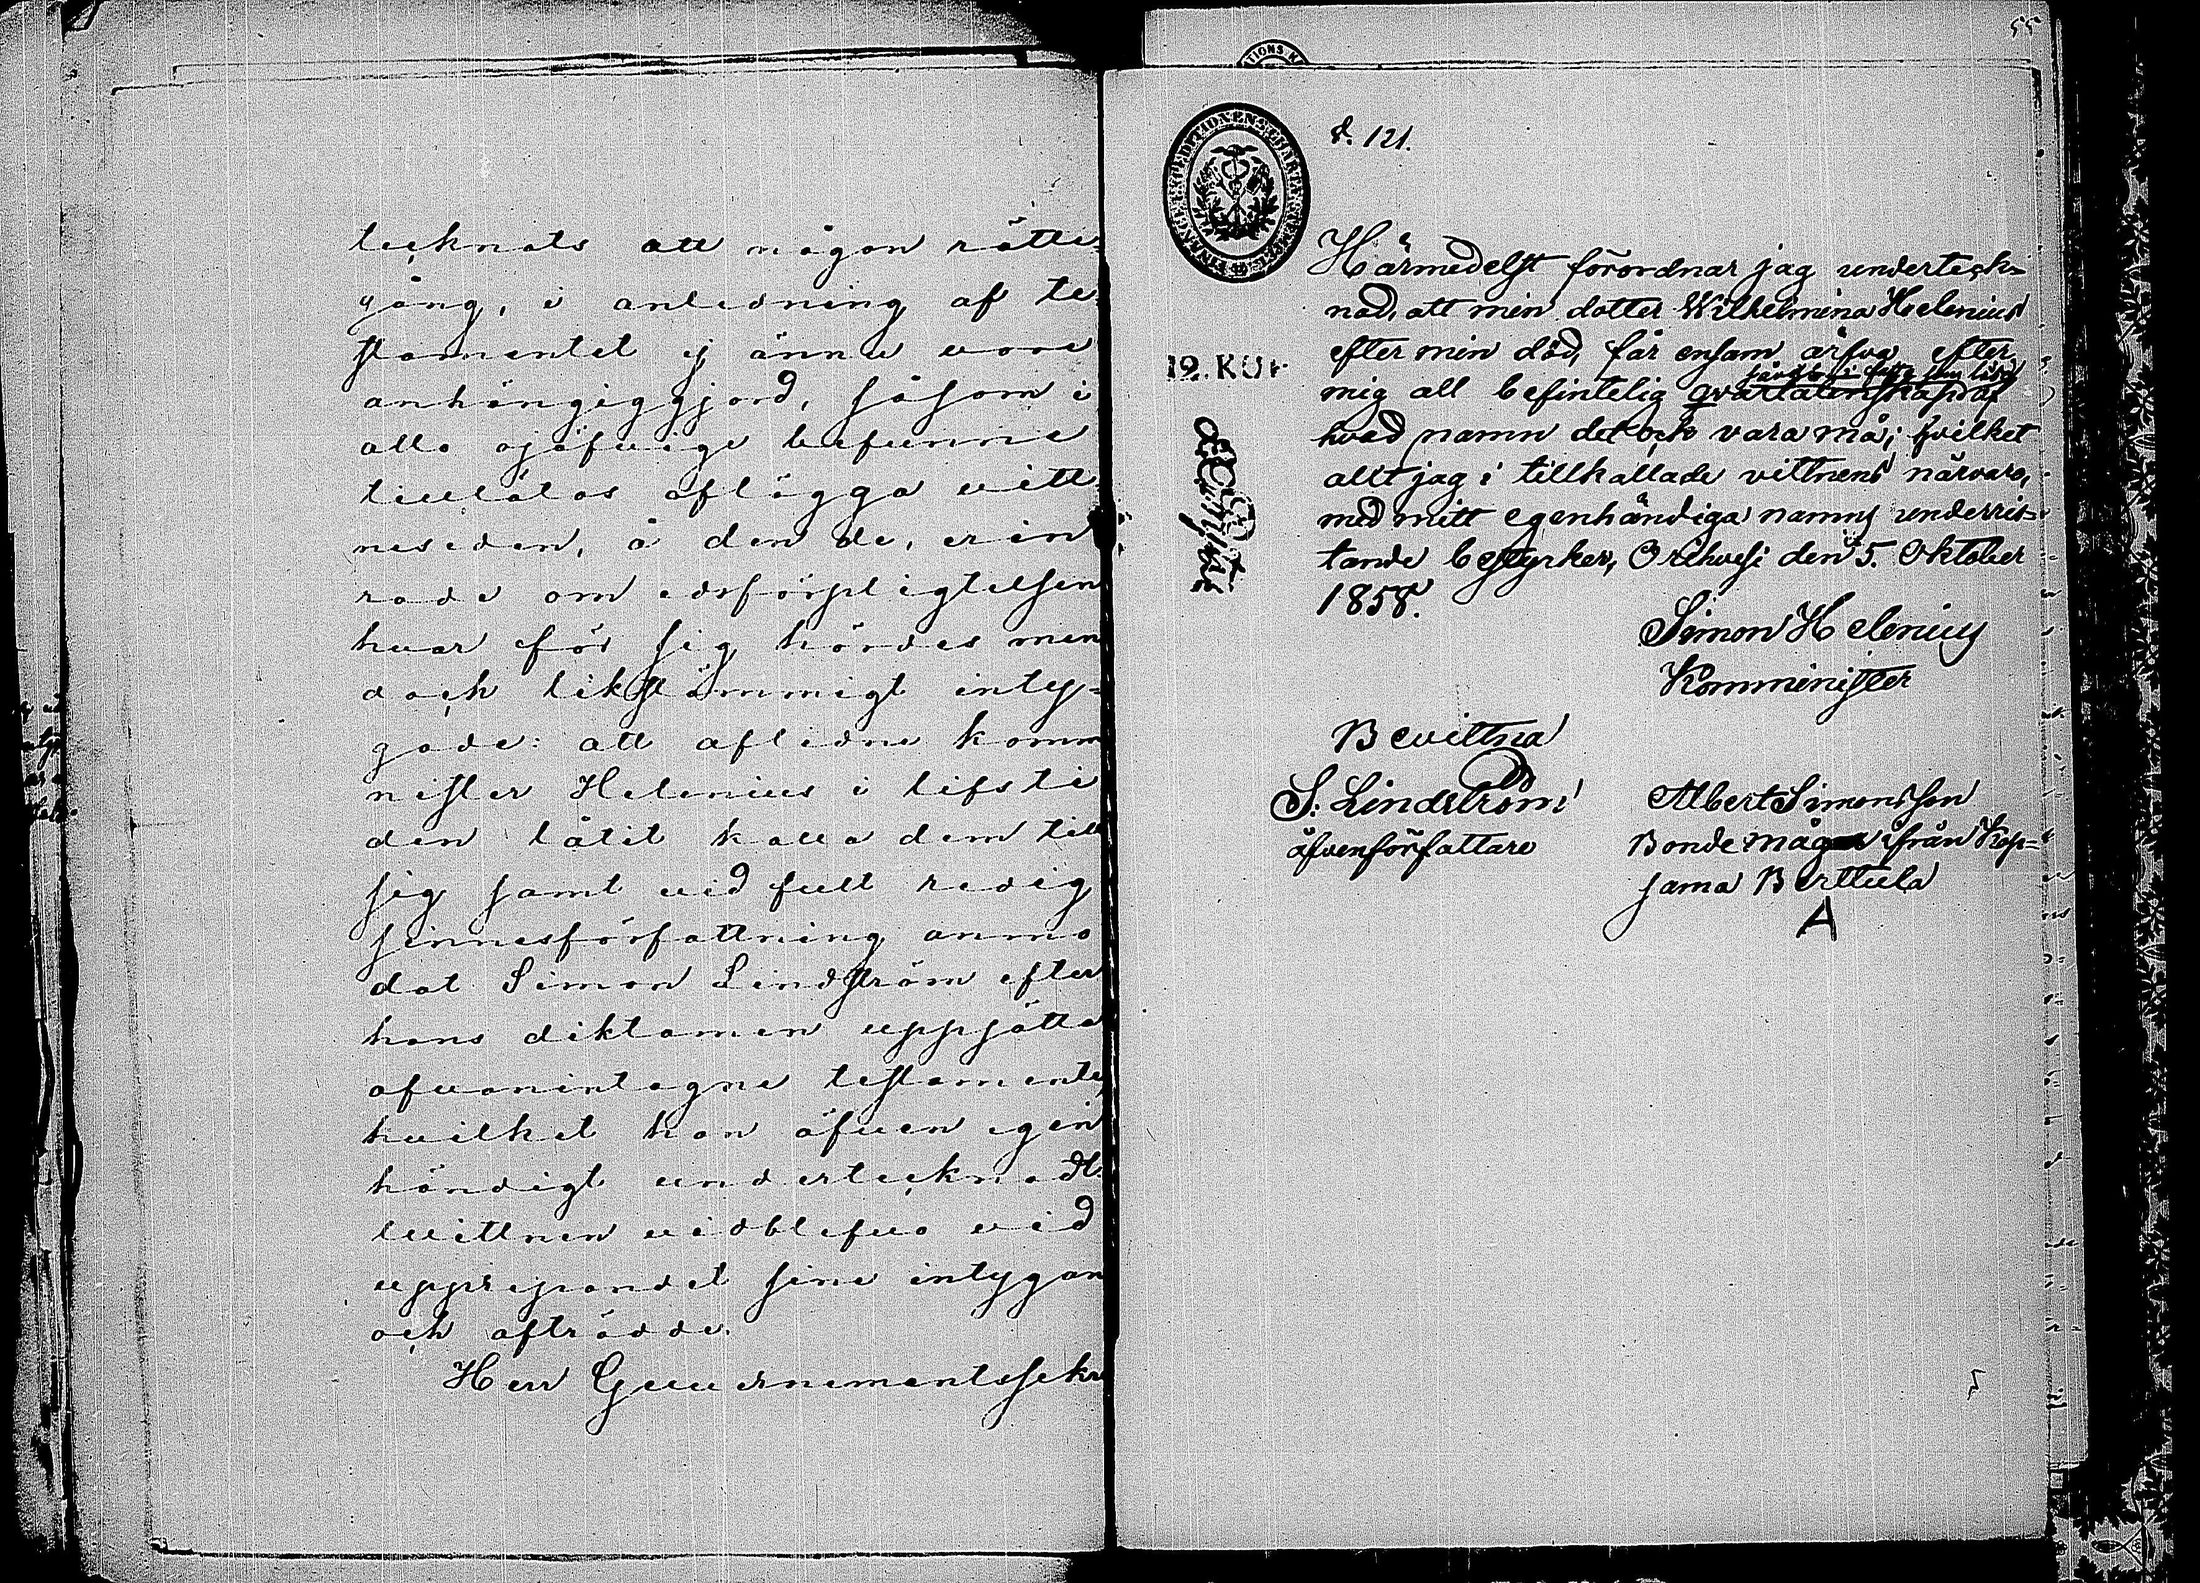 tecknats att någon rätte=
gång, i anledning af te=
stamentet ej ännu vore
anhängiggjord, såsom i
allo ojäfvige befunne
tillätos aflägga vitt
neseden, å den de, erin
rade om edsförpligtelsen
hvar för sig hördes men
dock likstämmigt inty=
gade: att aflidne kommi
nister Helenius i lifsti
den låtit kalla dem till
sig samt vid full redig
sinnesförfattning anmo
dat Simon Lindström efter
hans diktamen uppsätta
ofvanintagne testamente,
hvilket han äfven egen
händigt undertecknadt.
Vittnen vidblefvo vid
upprepandet sine intygan
och afträdde.
Herr Guvernementssekre
55
FINANCE EXPEDITIONENS CHARTÆ
d. 121.
12. KOP
Härmedelst förordnar jag underteck=
nad, att min dotter Wilhelmina Helenius
efter min död, får ensam ärfva efter
mig all befintelig qvarlåtenskap af
hvad namn det ock vara må; hvilket
allt jag i tillkallade vittnens närvaro,
med mitt egenhändiga namns underris=
tande bestyrker, Orihvesi den 5. Oktober
1858.
Simon Helenius
Komminister
Bevittna
S. Lindström
äfven författare
Albert Simonsson
Bonde måg ifrån Kop=
sama Berttula
A